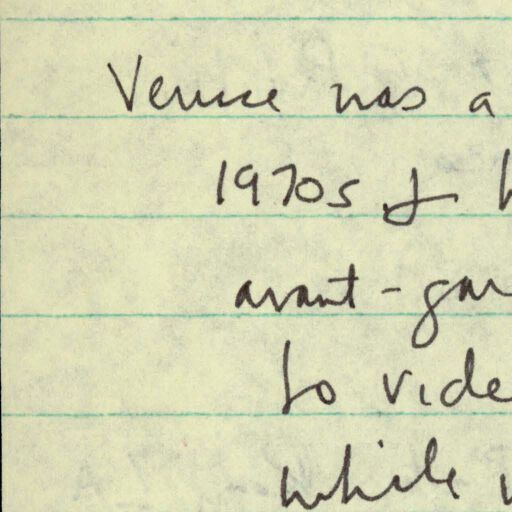 Venice was a
1970s &
avant-gar
to vide
while